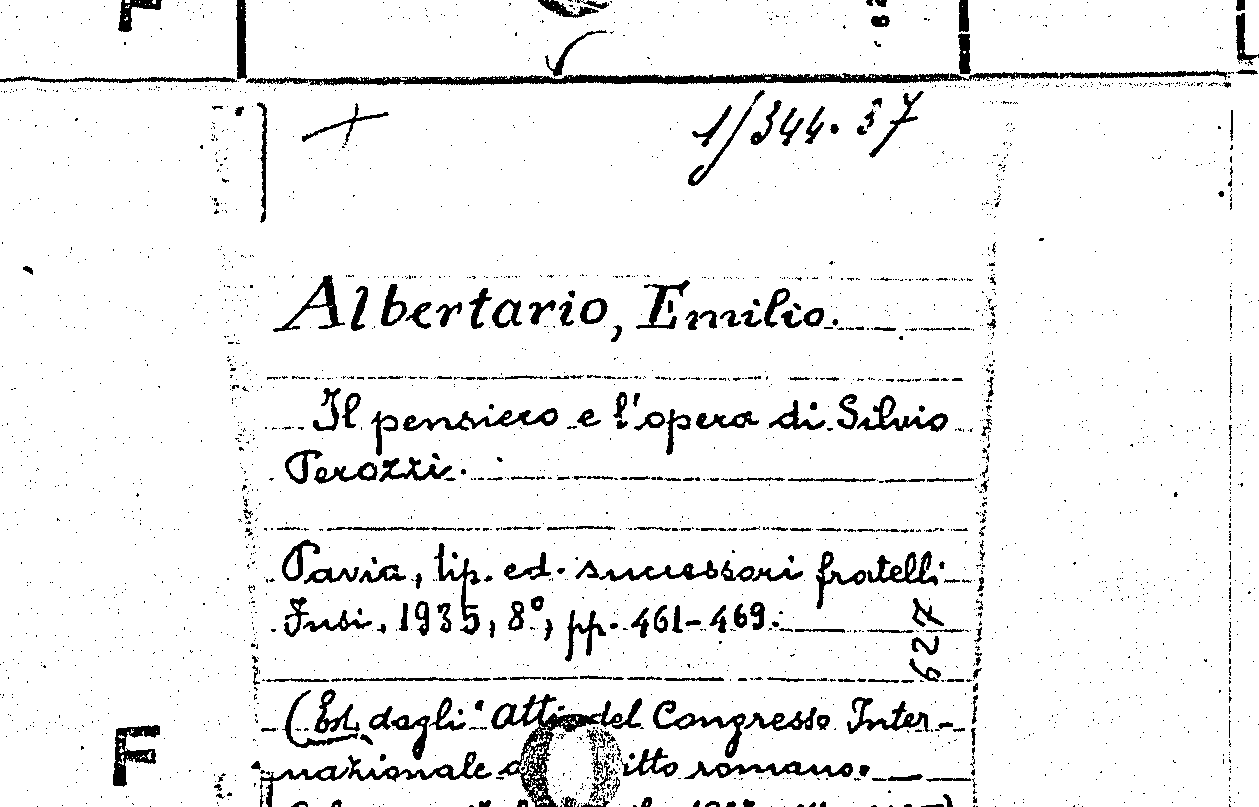 1/344.37
Albertario, Emilio.
Il pensiero e l'opera di Silvio
Perozzi.
Pavia, tip. ed. successori fratelli
Fusi, 1935, 8°, pp. 461-469.
627
(Est. dagli "Atti del Congresso Inter-
nazionale itto romano.
F